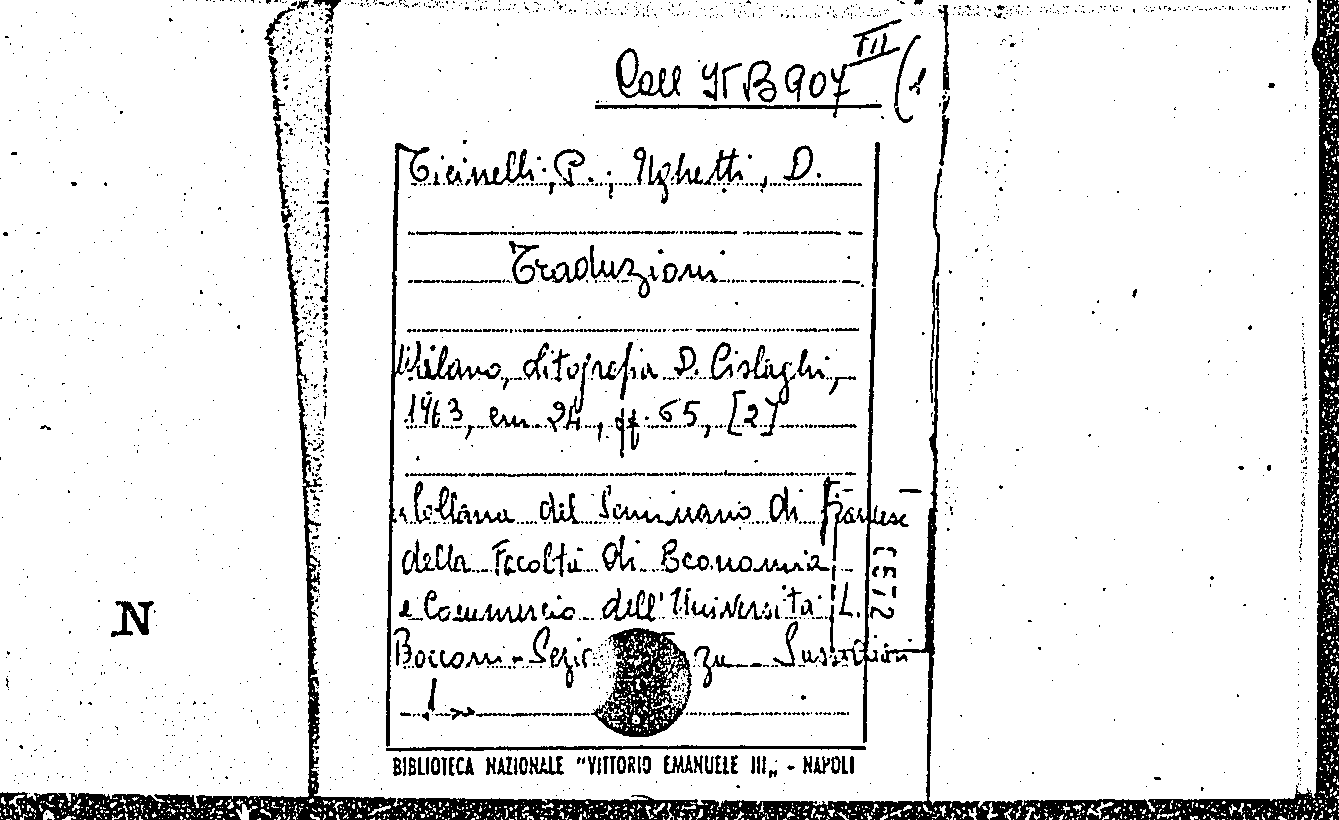 Coll. It B 907 III (1
Ticinelli, P.; Ughetti, D.
Traduzioni
Milano, Litografia D. Cislaghi,
1963, cm. 24, pp. 65, [2]
"Collana del Seminario di Francese
della Facoltà di Economia
e Commercio dell'Università L.
Bocconi - Sezi
1.»
N
BIBLIOTECA NAZIONALE "VITTORIO EMANUELE III„ - NAPOLI